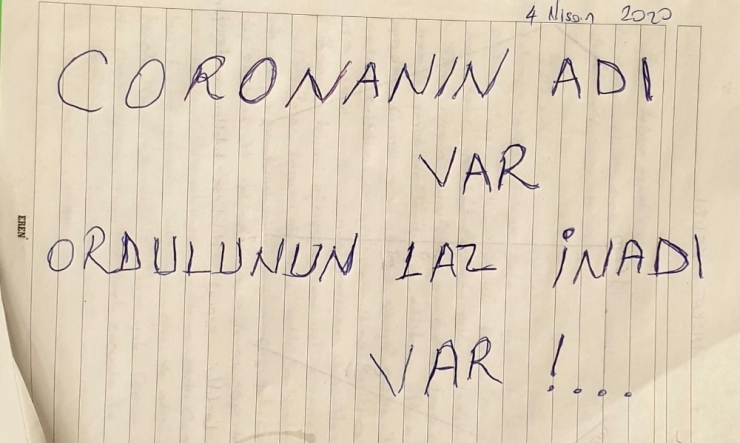 4 Nisan 2020
CORONANIN ADI
VAR
ORDULUNUN LAZ İNADI
VAR !....
EREN